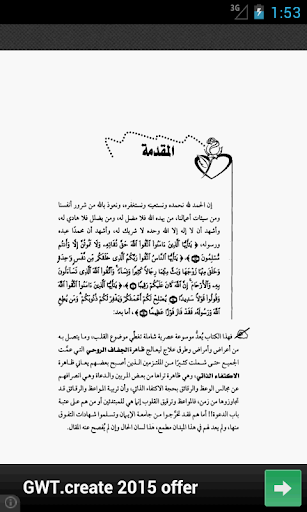 3G 1:53
المقدمة
إن الحمد لله نحمده ونستعينه ونستغفره، ونعوذ بالله من شرور أنفسنا
ومن سيئات أعمالنا، من يهده الله فلا مضل له، ومن يضلل فلا هادي له،
وأشهد أن لا إله إلا الله وحده لا شريك له، وأشهد أن محمدًا عبده
ورسوله، ﴿ يَٰٓأَيُّهَا ٱلَّذِينَ ءَامَنُوا۟ ٱتَّقُوا۟ ٱللَّهَ حَقَّ تُقَاتِهِۦ وَلَا تَمُوتُنَّ إِلَّا وَأَنتُم
مُّسْلِمُونَ ﴾ ﴿ يَٰٓأَيُّهَا ٱلنَّاسُ ٱتَّقُوا۟ رَبَّكُمُ ٱلَّذِى خَلَقَكُم مِّن نَّفْسٍ وَٰحِدَةٍ
وَخَلَقَ مِنْهَا زَوْجَهَا وَبَثَّ مِنْهُمَا رِجَالًا كَثِيرًا وَنِسَآءً ۚ وَٱتَّقُوا۟ ٱللَّهَ ٱلَّذِى تَسَآءَلُونَ
بِهِۦ وَٱلْأَرْحَامَ ۚ إِنَّ ٱللَّهَ كَانَ عَلَيْكُمْ رَقِيبًا ﴾ ﴿ يَٰٓأَيُّهَا ٱلَّذِينَ ءَامَنُوا۟ ٱتَّقُوا۟ ٱللَّهَ
وَقُولُوا۟ قَوْلًا سَدِيدًا ۝ يُصْلِحْ لَكُمْ أَعْمَٰلَكُمْ وَيَغْفِرْ لَكُمْ ذُنُوبَكُمْ ۗ وَمَن يُطِعِ
ٱللَّهَ وَرَسُولَهُۥ فَقَدْ فَازَ فَوْزًا عَظِيمًا ﴾، أما بعد:
فهذا الكتاب يُعدُّ موسوعة عصرية شاملة تغطي موضوع القلب، وما يتصل به
من أعراض وأمراض وطرق علاج ليعالج ظاهرة الجفاف الروحي التي عمَّت
الجميع حتى شملت كثيرًا من المتدينين الذين أصبح بعضهم يعاني أعراض
الاكتفاء الذاتي، وهي ظاهرة تراها من بعض المربين والدعاة وهي انصرافهم
عن مجالس الوعظ والرقائق بحجة الاكتفاء الذاتي، وأن تربية المواعظ والرقائق قد
تجاوزوها من زمن، فالمواعظ وترقيق القلوب إنما هي للمبتدئين أو من هم على عتبة
باب الدعوة!! أما هم فقد تخرَّجوا من جامعة الإيمان وتسلموا شهادات التفوق
منها، ولم يعد لهم في هذا الميدان مطمع، هذا لسان الحال وإن لم يُفصح عنه المقال.
GWT.create 2015 offer